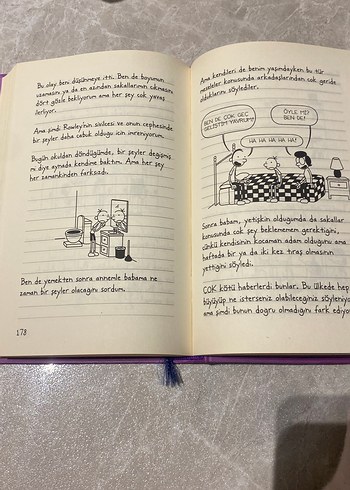 Bu olay beni düşünmeye itti. Ben de boyumun
uzamasını ya da en azından sakallarımın çıkmasını
dört gözle bekliyorum ama her şey çok yavaş
ilerliyor.
Ama şimdi Rowley'nin sivilcesi ve onun cephesinde
bir şeyler daha çabuk olduğu için imreniyorum.
Bugün okuldan döndüğümde, bir şeyler değişmiş
mi diye aynada kendime baktım. Ama her şey
her zamankinden farksızdı.
Ben de yemekten sonra annemle babama ne
zaman bir şeyler olacağını sordum.
178
Ama kendileri de benim yaşımdayken bu tür
meseleler konusunda arkadaşlarından çok geride
olduklarını söylediler.
BEN DE ÇOK GEÇ
GELİŞTİM YAVRUM!
ÖYLE Mİ?
BEN DE!
HA HA HA HA HA!
Sonra babam, yetişkin olduğumda da sakallar
konusunda çok şey beklememem gerektiğini,
çünkü kendisinin kocaman adam olduğunu ama
haftada bir ya da iki kez tıraş olmasının
yettiğini söyledi.
ÇOK kötü haberlerdi bunlar. Bu ülkede hep
büyüyüp ne isterseniz olabileceğiniz
ama şimdi bunun doğru olmadığını fark